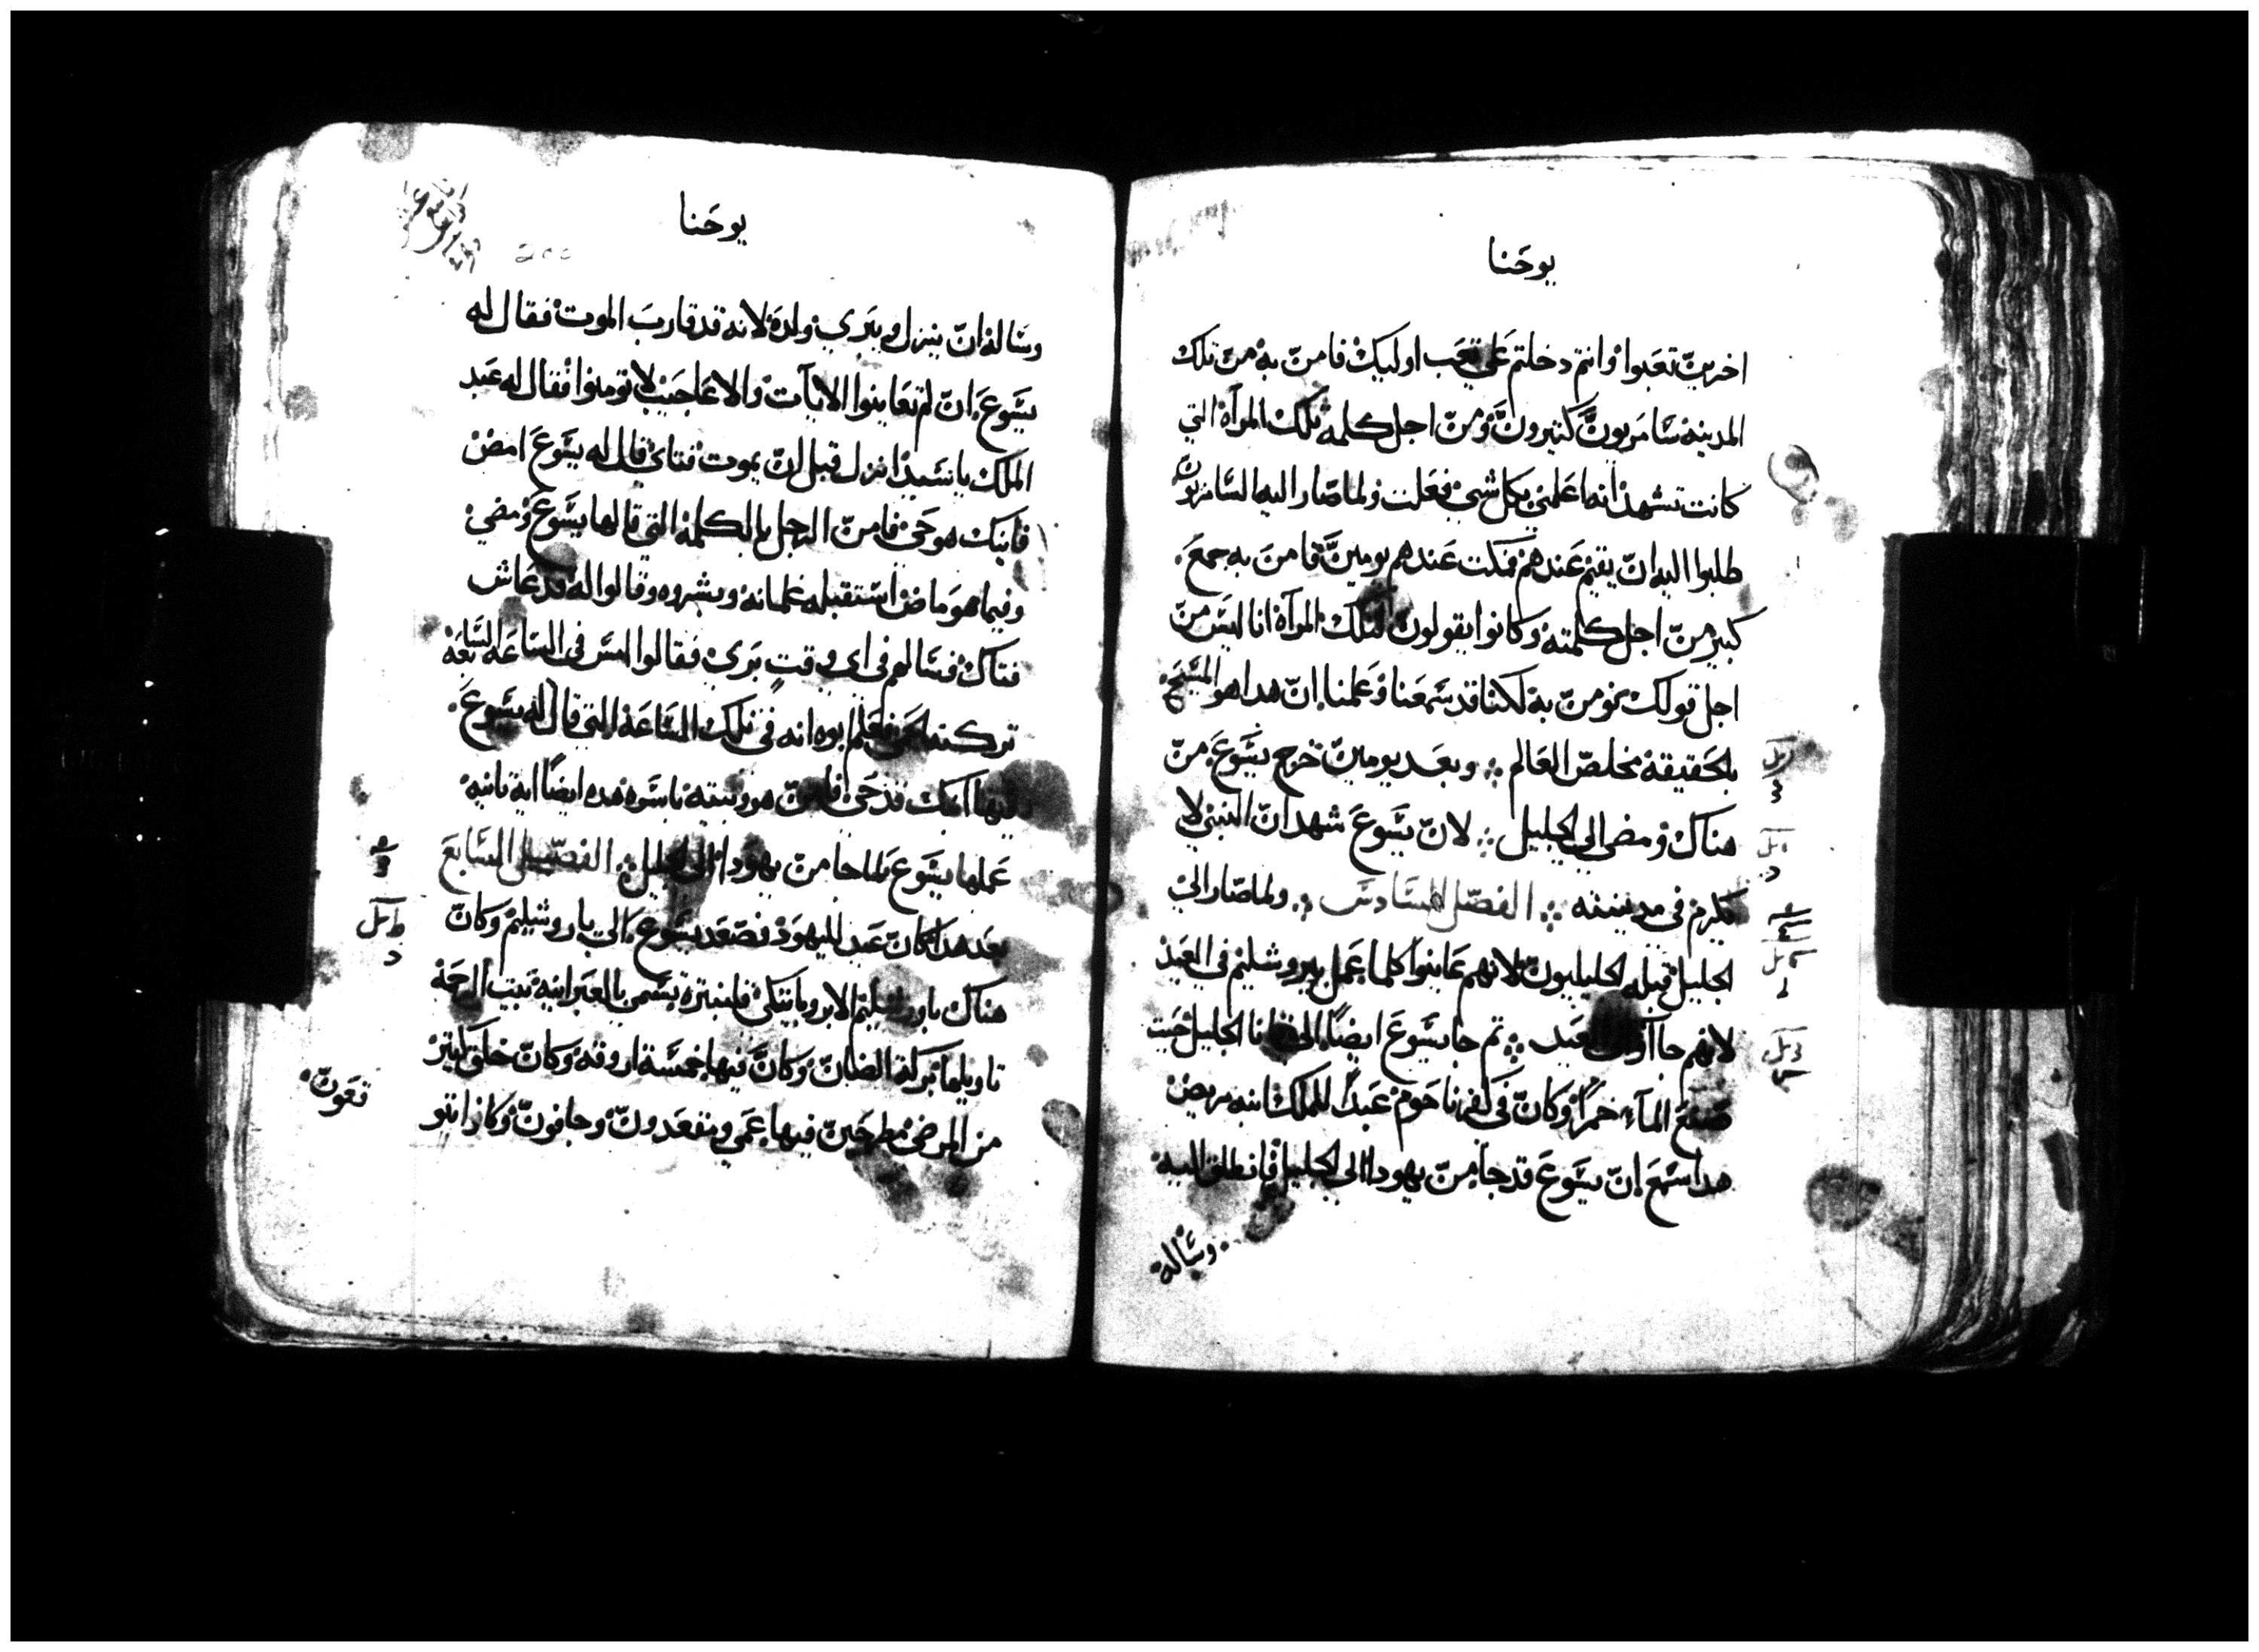 يوحنا
اخرين تعبوا وانتم دخلتم على تعب اوليك فامن به من تلك
المدينه سامريون كثيرون ومن اجل كلمة تلك المرآة التي
كانت تشهد انه اعلمني بكل شي فعلت ولما صار اليه السامريون
طلبوا اليه ان يقيم عندهم فمكت عندهم يومين فامن به جمع
كبير من اجل كلمته وكانوا يقولون لتلك المرآة انا ليس من
اجل قولك نومن به لكنا قد سمعنا وعلمنا ان هدا هو المسيح
بالحقيقة مخلص العالم وبعد يومين خرج يسوع من
هناك ومضى الى الجليل لان يسوع شهد ان النبي لا
يكرم في مدينته الفصل السادس ولما صار الى
الجليل قبله الجليليون لانهم عاينوا كلما عمل بيروشليم في العيد
لانهم جاآوا الى العيد ثم جا يسوع ايضًا الى قانا الجليل حيت
صنع المآء خمرًا وكان في كفرناحوم عبدًا للملك ابنه مريض
هدا سمع ان يسوع قد جا من يهودا الى الجليل فانطلق اليه
وساله
يوحنا
وساله ان ينزل ويبري ولده لانه قد قارب الموت فقال له
يسوع ان لم تعاينوا الايآت والاعاجيب لا تومنوا فقال له عبد
الملك يا سيد انزل قبل ان يموت فتاي قال له يسوع امض
فابنك هو حي فامن الرجل بالكلمة التي قالها يسوع ومضي
وفيما هو ماض استقبله غلمانه وبشروه وقالوا له قد عاش
فتاك فسالهم في اي وقت بري فقالوا امس في الساعه السابعه
تركته الحمى فعلم ابوه انه في تلك الساعة التي قال له يسوع
فيها ابنك قد حي فامن هو وبيته باسره هده ايضًا اية تانيه
عملها يسوع لما جا من يهودا الى الجليل الفصل السابع
بعد هدا كان عيد لليهود فصعد يسوع الى ياروشليم وكان
هناك بياروشليم الابروباتيكي قلنبتره تسمى بالعبرانيه بيت الرحمة
تاويلها بركة الضان وكان فيها خمسة اروقه وكان خلق كتير
من المرضى مطرحين فيها عمي ومقعدون وجافون وكانوا يتو
قعون